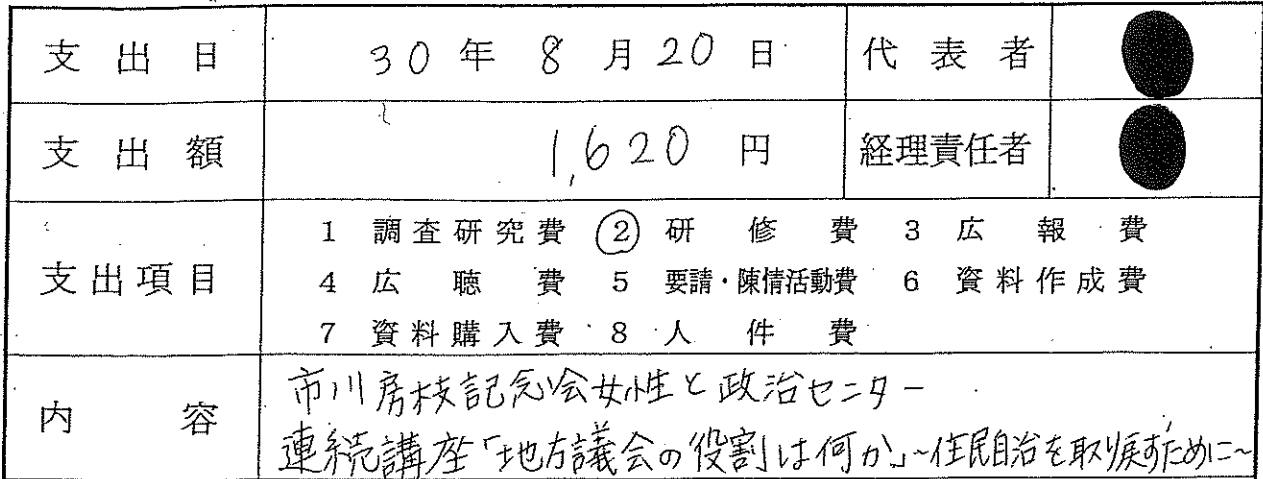 支出日 30年8月20日 代表者
支出額 1,620円 経理責任者
支出項目 1 調査研究費 2 研修費 3 広報費
4 広聴費 5 要請・陳情活動費 6 資料作成費
7 資料購入費 8 人件費
内容 市川房枝記念会女性と政治センター
連続講座「地方議会の役割は何か」~住民自治を取り戻すために~